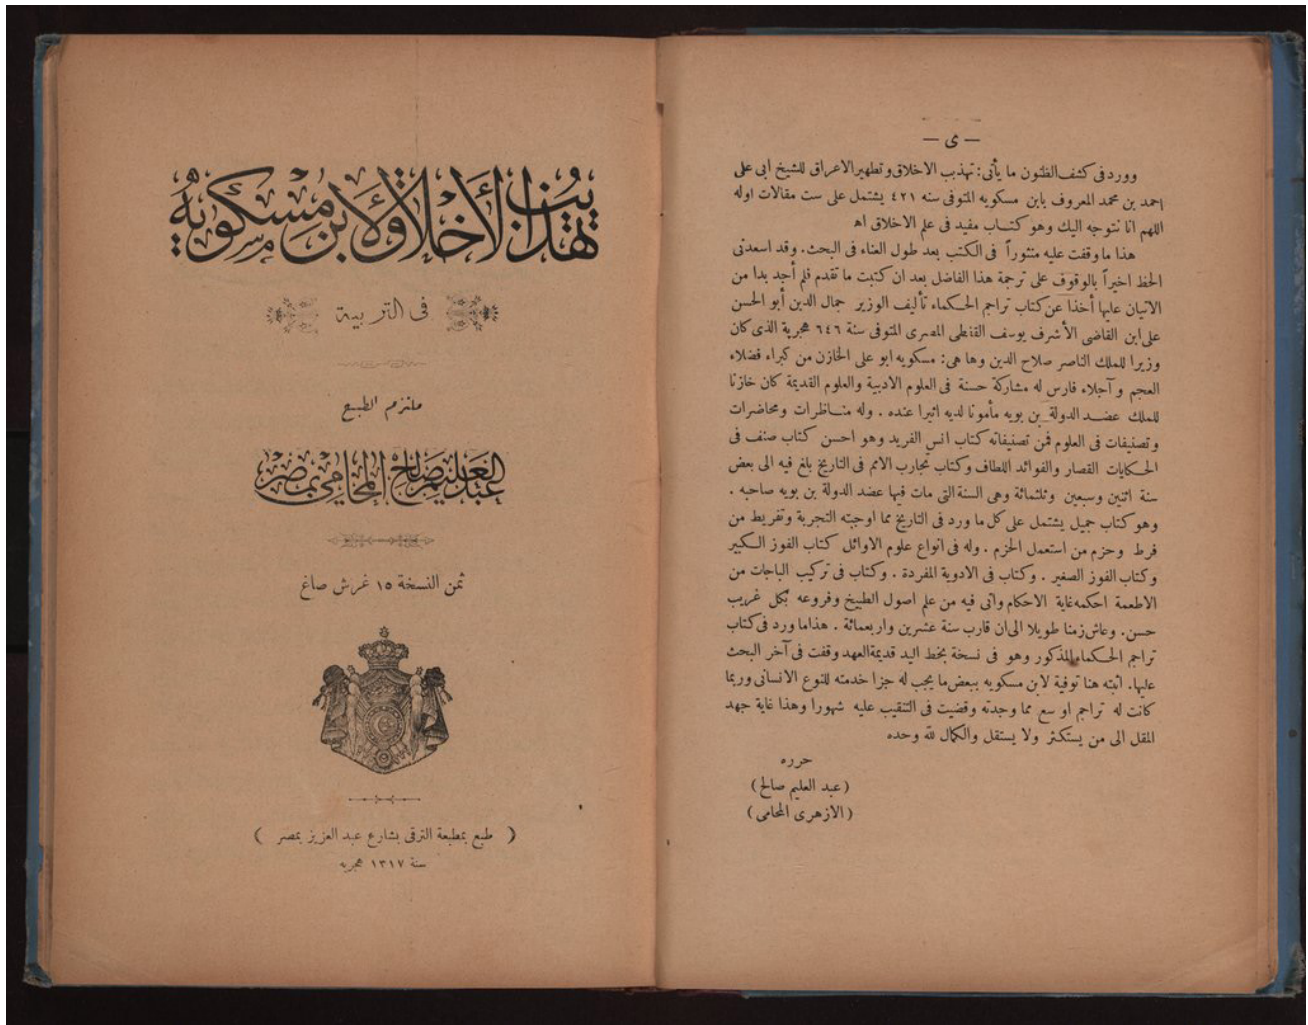 — ى —
وورد فى كشف الظنون ما يأتى: تهذيب الاخلاق وتطهير الاعراق للشيخ ابى على
احمد بن محمد المعروف بابن مسكويه المتوفى سنه ٤٢١ يشتمل على ست مقالات اوله
اللهم انا نتوجه اليك وهو كتاب مفيد فى علم الاخلاق اه
هذا ما وقفت عليه منثوراً فى الكتب بعد طول العناء فى البحث. وقد اسعدنى
الحظ اخيراً بالوقوف على ترجمة هذا الفاضل بعد ان كتبت ما تقدم فلم أجد بدا من
الاتيان عليها أخذا عن كتاب تراجم الحكماء تأليف الوزير جمال الدين أبو الحسن
على ابن القاضى الأشرف يوسف القفطى المصرى المتوفى سنة ٦٤٦ هجرية الذى كان
وزيرا للملك الناصر صلاح الدين وها هى: مسكويه ابو على الخازن من كبراء فضلاء
العجم وآجلاء فارس له مشاركة حسنة فى العلوم الادبية والعلوم القديمة كان خازنا
للملك عضد الدولة بن بويه مأمونا لديه اثيرا عنده . وله مناظرات ومحاضرات
وتصنيفات فى العلوم فمن تصنيفاته كتاب انس الفريد وهو احسن كتاب صنف فى
الحكايات القصار والفوائد اللطاف وكتاب تجارب الامم فى التاريخ بلغ فيه الى بعض
سنة اثنين وسبعين وثلثمائة وهى السنة التى مات فيها عضد الدولة بن بويه صاحبه .
وهو كتاب جميل يشتمل على كل ما ورد فى التاريخ مما اوجبته التجربة وتفريط من
فرط وحزم من استعمل الحزم . وله فى انواع علوم الاوائل كتاب الفوز الكبير
وكتاب الفوز الصغير . وكتاب فى الادوية المفردة . وكتاب فى تركيب الباجات من
الاطعمة احكمه غاية الاحكام واتى فيه من علم اصول الطبيخ وفروعه بكل غريب
حسن. وعاش زمنا طويلا الى ان قارب سنة عشرين واربعمائة . هذا ما ورد فى كتاب
تراجم الحكماء المذكور وهو فى نسخة بخط اليد قديمة العهد وقفت فى آخر البحث
عليها. اثبته هنا توفية لابن مسكويه ببعض ما يجب له جزا خدمته للنوع الانسانى وربما
كانت له تراجم او سع مما وجدته وقضيت فى التنقيب عليه شهورا وهذا غاية جهد
المقل الى من يستكثر ولا يستقل والكمال لله وحده
حرره
(عبد العليم صالح)
(الازهرى المحامى)
تهذيب الأخلاق لابن مسكويه
فى التربية
ملتزم الطبع
عبد العليم صالح المحامى بمصر
ثمن النسخة ١٥ غرش صاغ
( طبع بمطبعة الترقى بشارع عبد العزيز بمصر )
سنة ١٣١٧ هجريه